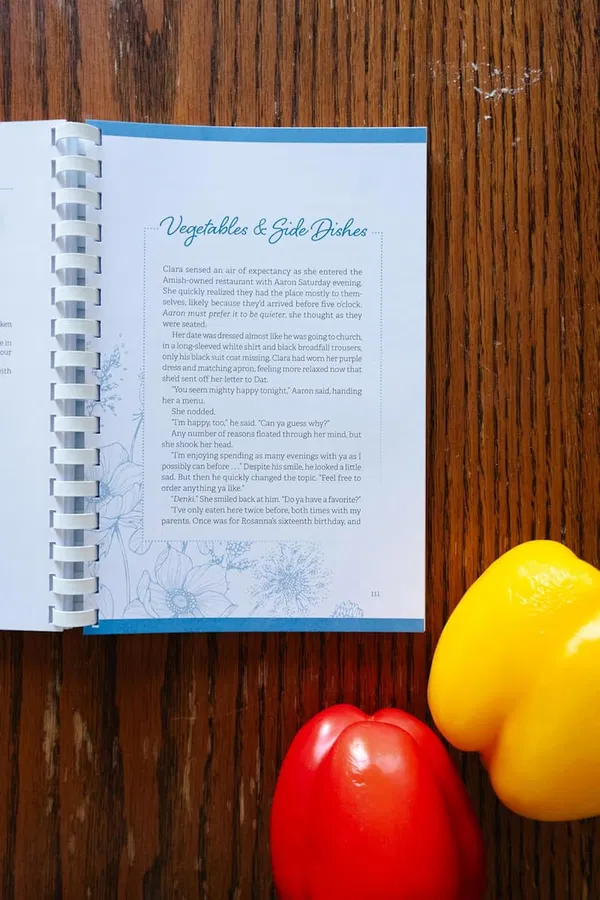 ken
e in
our
ith
Vegetables & Side Dishes
Clara sensed an air of expectancy as she entered the
Amish-owned restaurant with Aaron Saturday evening.
She quickly realized they had the place mostly to them-
selves, likely because they'd arrived before five o'clock.
Aaron must prefer it to be quieter, she thought as they
were seated.
Her date was dressed almost like he was going to church,
in a long-sleeved white shirt and black broadfall trousers,
only his black suit coat missing. Clara had worn her purple
dress and matching apron, feeling more relaxed now that
she'd sent off her letter to Dat.
"You seem mighty happy tonight," Aaron said, handing
her a menu.
She nodded.
"I'm happy, too," he said. "Can ya guess why?"
Any number of reasons floated through her mind, but
she shook her head.
"I'm enjoying spending as many evenings with ya as I
possibly can before . . ." Despite his smile, he looked a little
sad. But then he quickly changed the topic. "Feel free to
order anything ya like."
"Denki." She smiled back at him. "Do ya have a favorite?"
"I've only eaten here twice before, both times with my
parents. Once was for Rosanna's sixteenth birthday, and
111